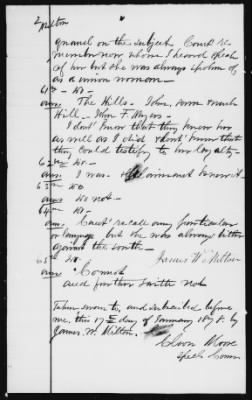 2
Milton
quarrel on the subject Cannot re-
member now whom I heard speak
of her but she was always spoken of
as a union woman -
61st - Wo -
ans: The Hills - John, and
Hill - John F. Ayers -
I don't know that they knew her
as well as I did & don't know that
they could testify to her loyalty -
62nd Wo -
ans: I was - Claimant knew it
63rd Wo
ans: Do not -
64th Wo -
ans: Can't recall any particular
language but she was always bitter
against the south -
James W. Milton
65th Wo.
ans: Cannot
and further saith not
Taken sworn to, and subscribed before
me, this 17th day of January 1878. by
James W. Milton.
Moore
Special Comr